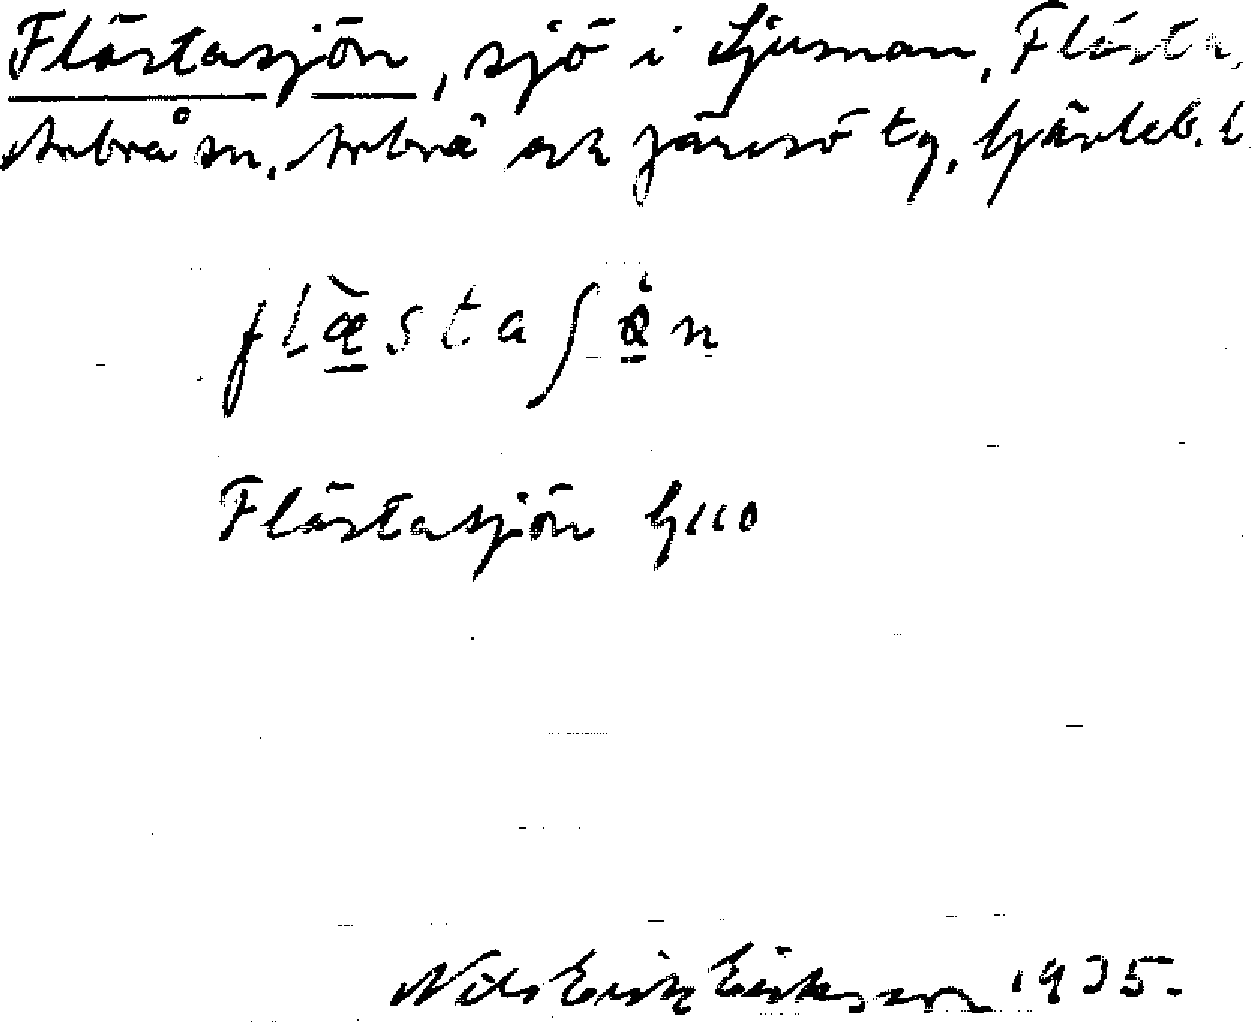 Flästasjön, sjö i Ljusnan, Flästa,
Arbrå sn, Arbrå och Järvsö tg, Gävleb. l.
flæstaʃön
Flästasjön G110
Nils Erik Eriksson 1935.